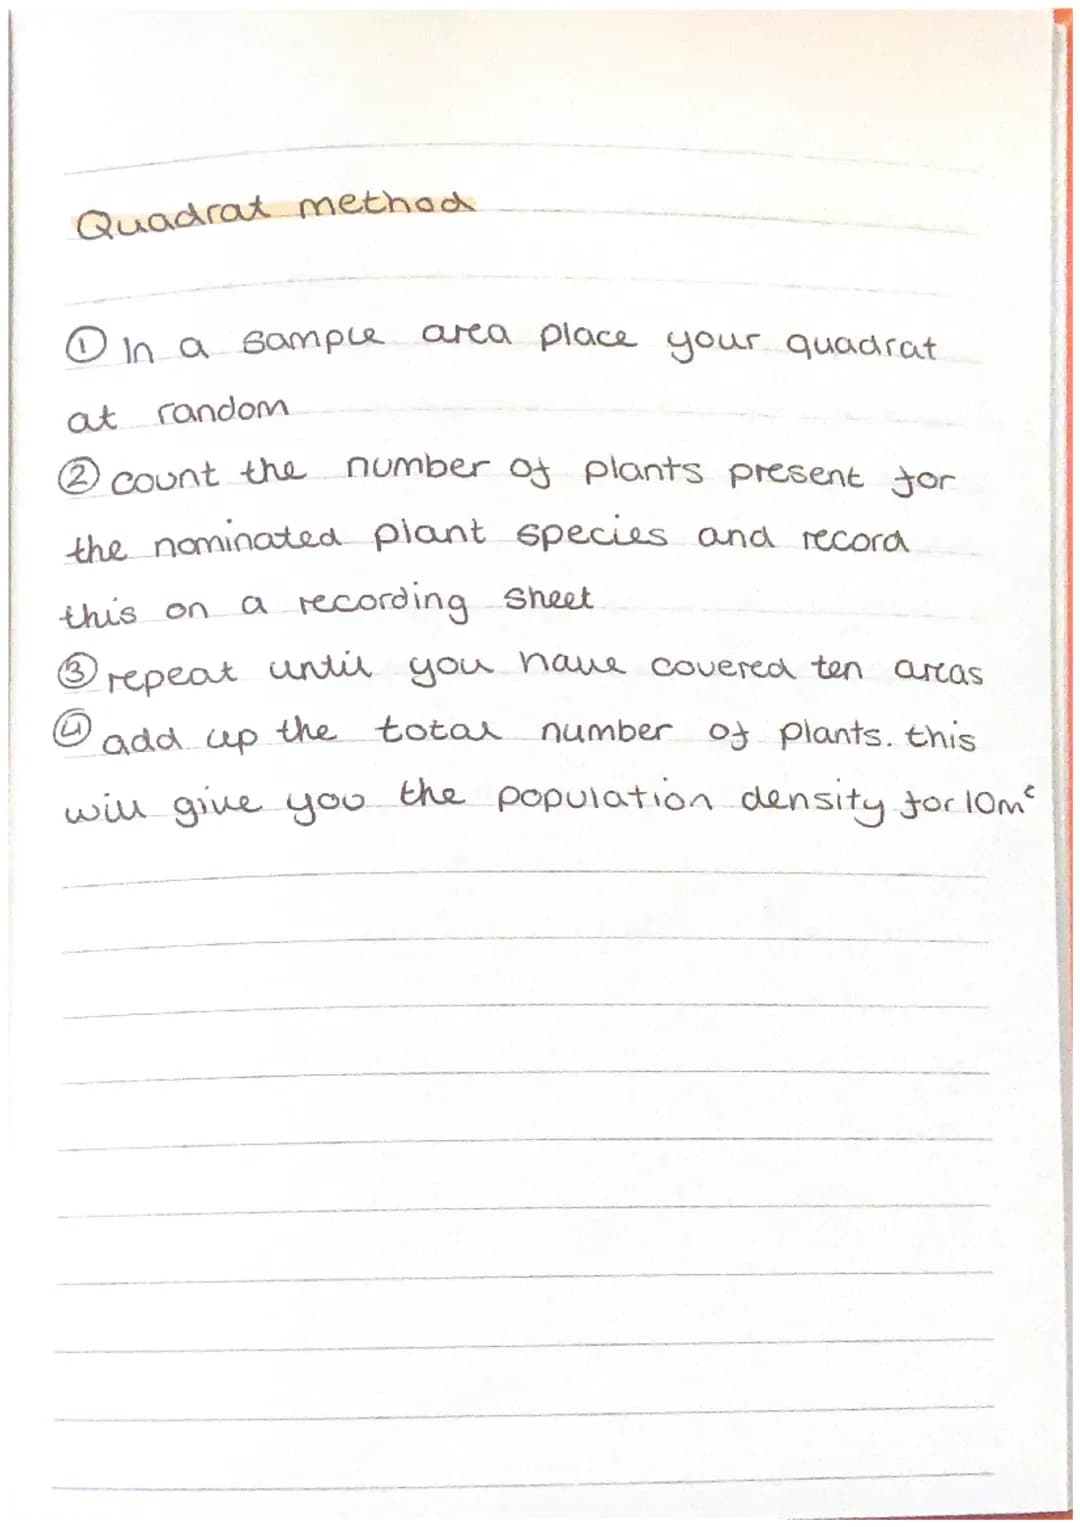 Quadrat method
① In a sample area place your quadrat
at random
② count the number of plants present for
the nominated plant species and record
this on a recording sheet
③ repeat until you have covered ten areas
④ add up the total number of plants. this
will give you the population density for 10m²